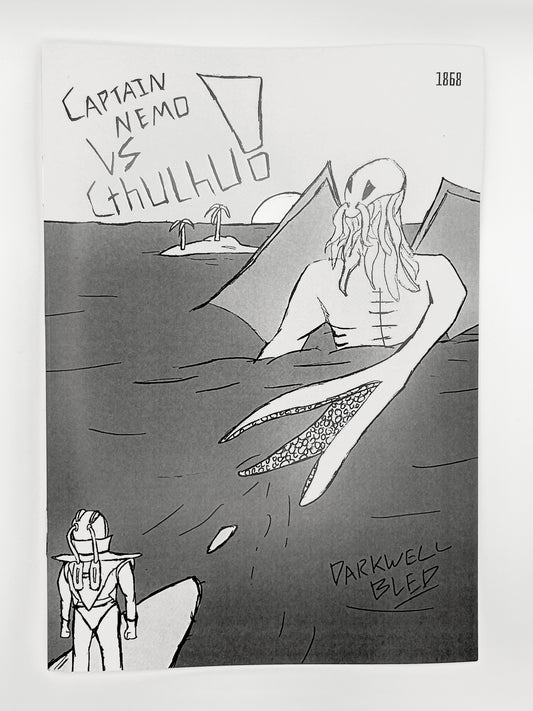 CAPTAIN
NEMO
VS
CthuLhu!
1868
DARKWELL
BLED